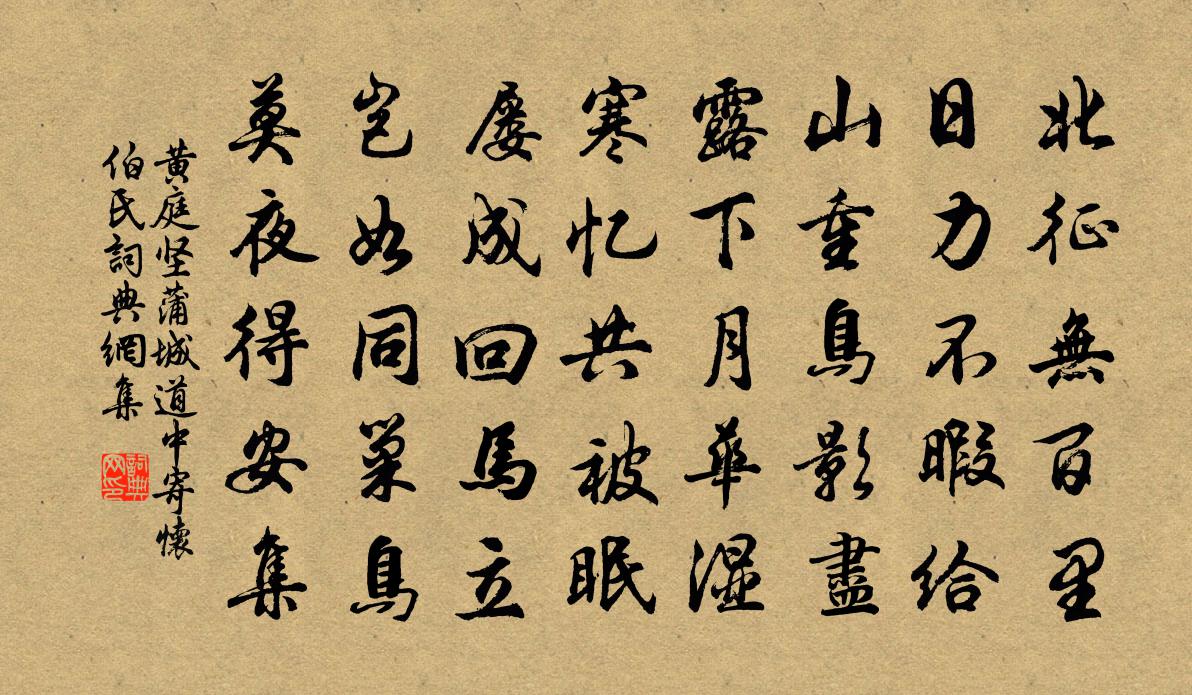 北征無百里
日力不暇给
山重鳥影盡
露下月華湿
寒忆共被眠
屡成回馬立
岂如同巢鳥
莫夜得安集
黄庭坚蒲城道中寄懷
伯氏詞典網集
詞典
网印